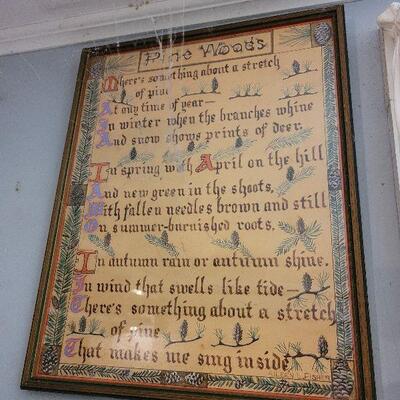 Pine Woods
There's something about a stretch
of pine
At any time of year—
In winter when the branches whine
And snow shows prints of deer.
In spring with April on the hill
And new green in the shoots,
With fallen needles brown and still
On summer-burnished roots.
In autumn rain or autumn shine,
In wind that swells like tide—
There's something about a stretch
of pine
That makes me sing inside
AILEEN L. FISHER